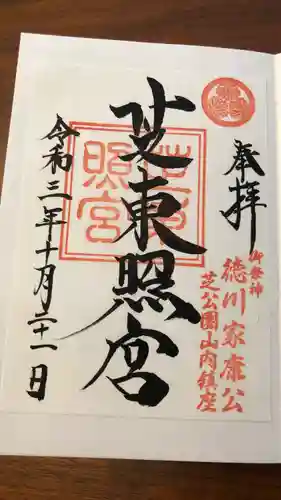 奉拝
御祭神
徳川家康公
芝公園山内鎮座
芝東照宮
芝東照宮
令和三年十月二十一日